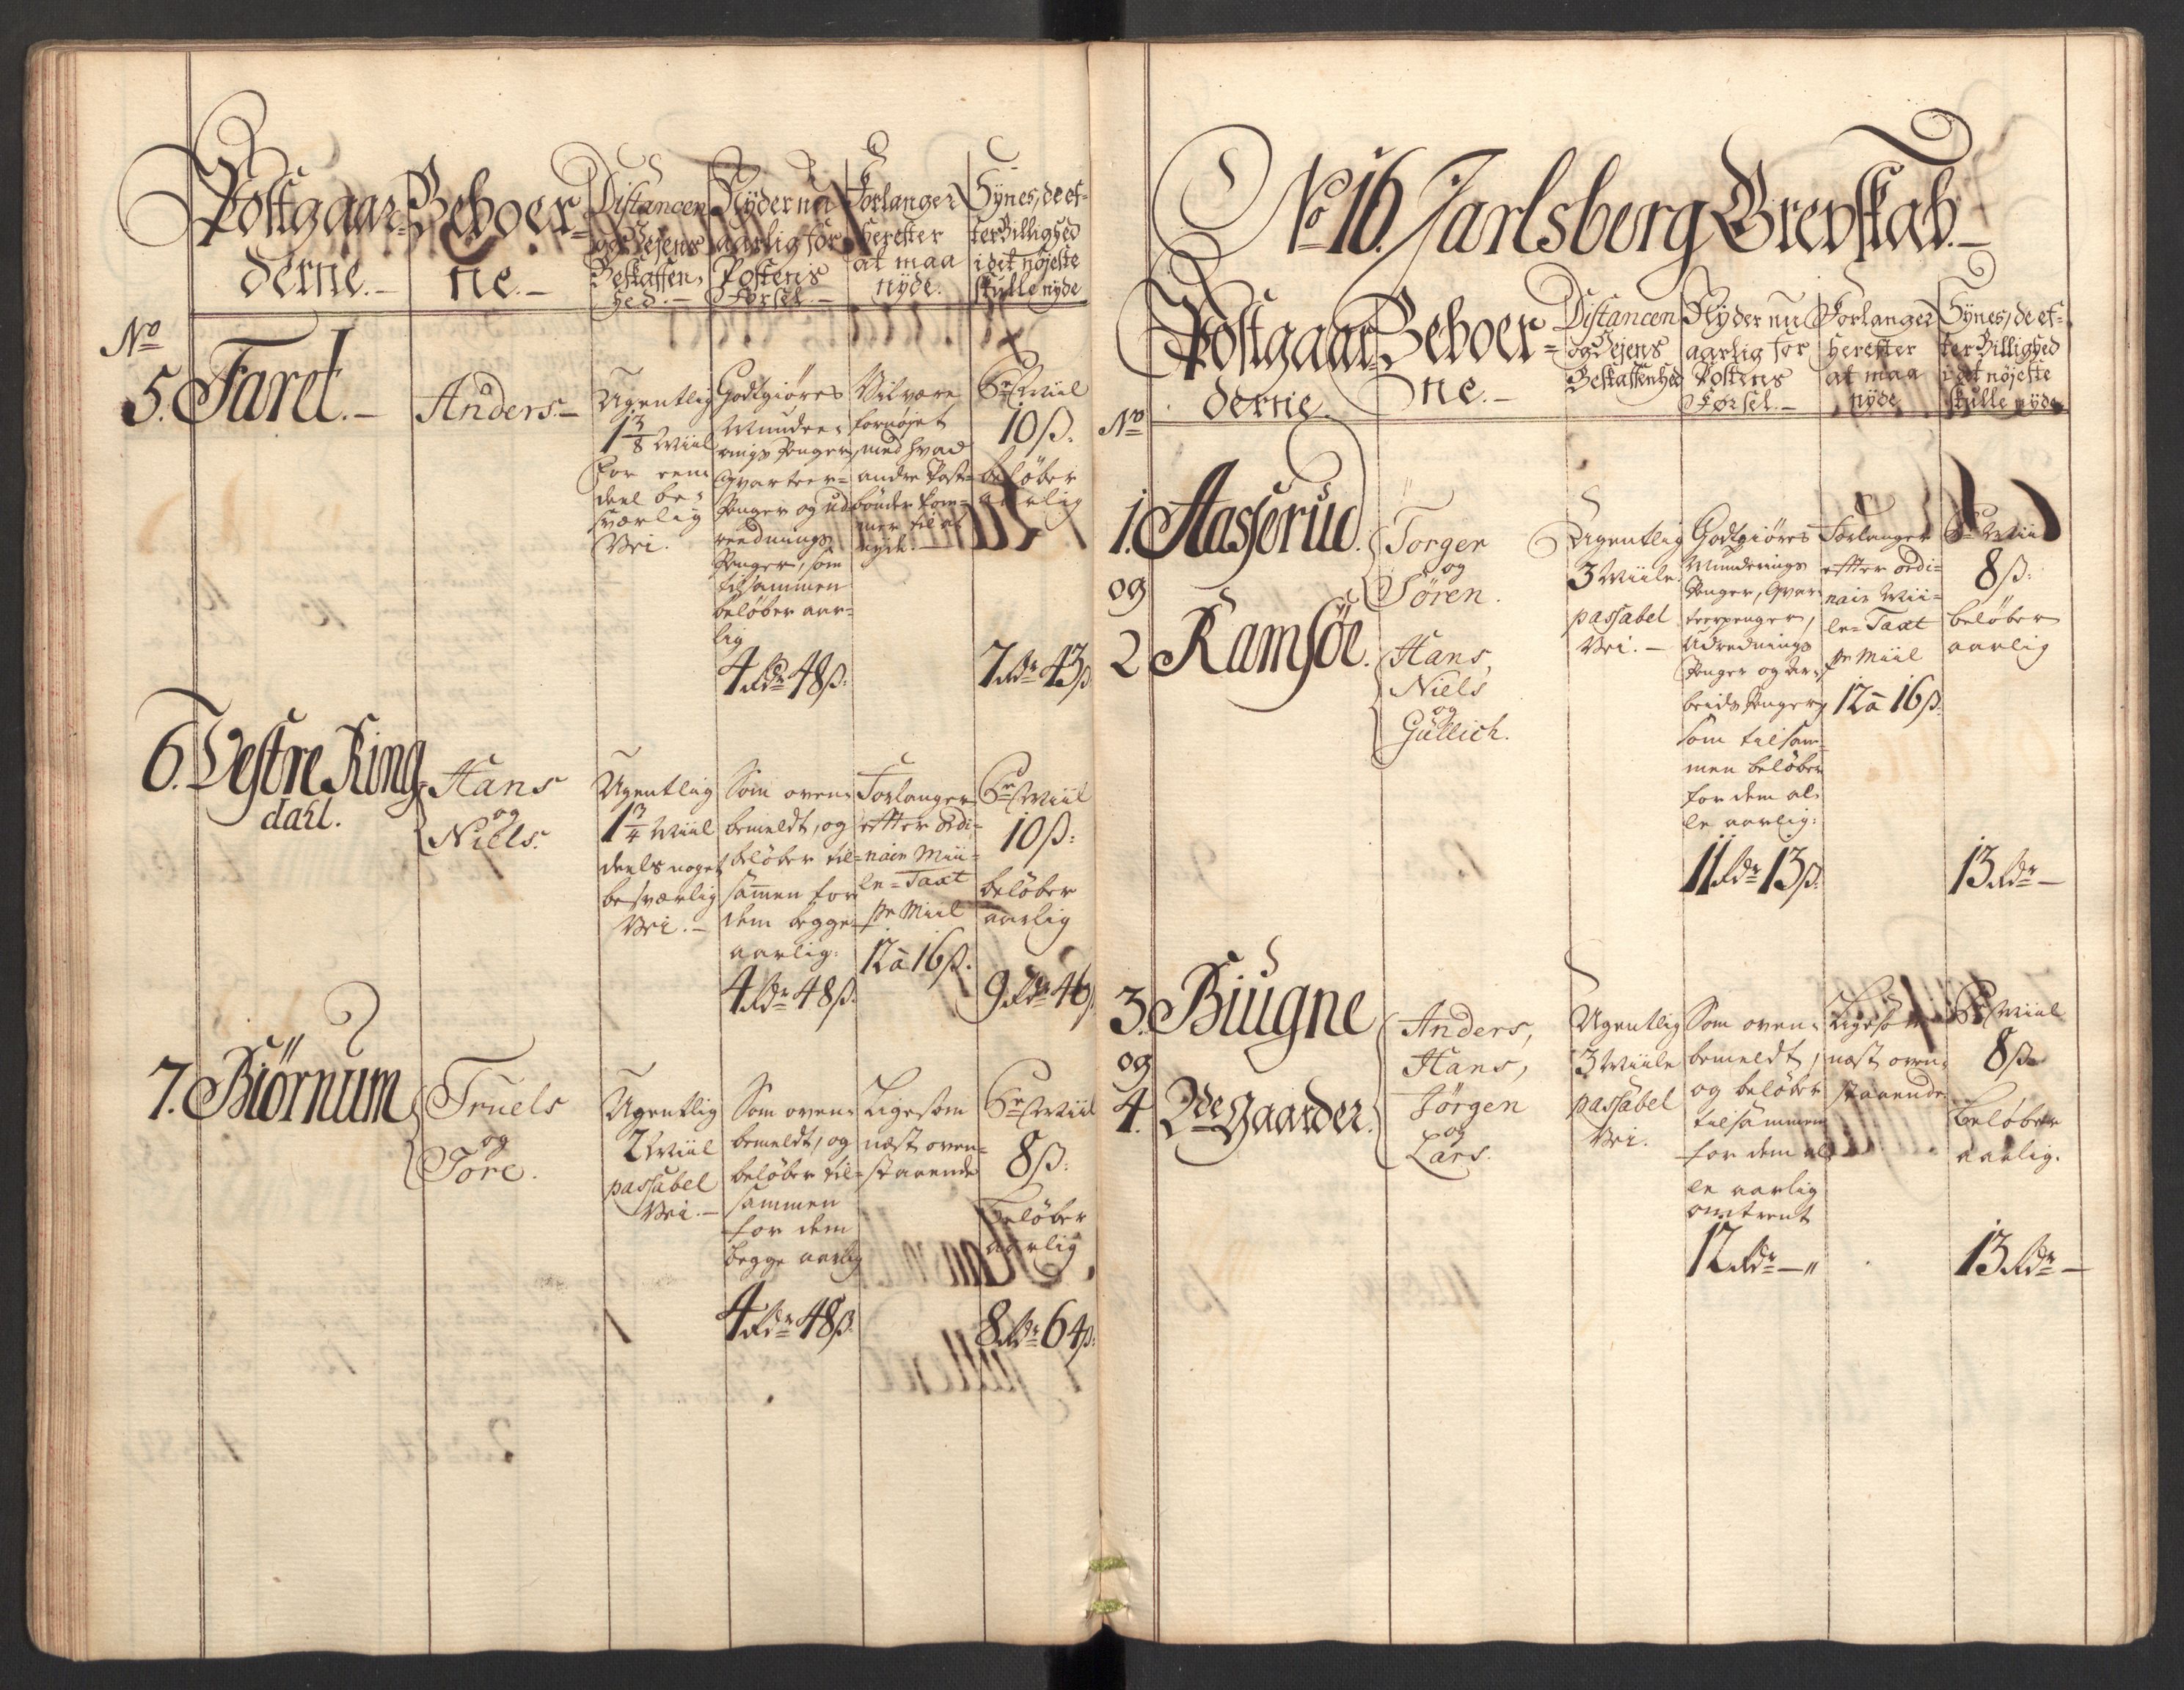 Postgaar=
derne.-
Beboer=
ne.-
Distancen
og Vejens
Beskaffen,
hed.-
Nyder nu
aarlig for
Postens
Førsel.-
Forlanger
herefter
at maa
nyde.
Synes, de ef-
ter Billighed
i det nøjeste
skulle nyde
No
5. Faret.-
Anders.-
Ugentlig
1 3/8 Miil
for een
deel be=
sværlig
Vei.
Godtgiøres
Munde=
rings Penger,
Qvarteer=
Penger og ud
reednings
Penger, som
tilsammen
beløber aar=
lig
4 Rdr 48 ß.
Vil være
fornøjet
med hvad
andre Post=
bønder kom=
mer til at
nyde.-
Pr Miil
10 ß.
beløber
aarlig
7 Rdr 43 ß
6. Vestre Ring
dahl.
Hans
og
Niels.
Ugentlig
1 3/4 Miil
deels noget
besværlig
Vei.-
Som oven=
bemeldt, og
beløber til=
samen for
dem begge
aarlig:
4 Rdr 48 ß.
Forlanger
efter ordi=
nair Mii=
le=Taxt
pr Miil
12 à 16 ß.
Pr Miil
10 ß:
beløber
aarlig
9 Rdr 46 ß
7. Biørnum
Truels
og
Tore.
Ugentlig
2 Miil
passabel
Vei.-
Som oven=
bemeldt, og
beløber til=
sammen
for dem
begge aarlig
4 Rdr 48 ß.
Ligesom
næst oven=
staaende
Pr Miil
8 ß:
beløber
aarlig
8 Rdr 64 ß.
No 16. Jarlsberg Grevskab.-
Postgaar
derne.
Beboer=
ne.-
Distancen
og Vejens
Beskaffenhed
Nyder nu
aarlig for
Postens
Førsel.-
Forlanger
herefter
at maa
nyde
Synes, de ef=
ter Billighed
i det nøjeste
skulle nyde
No
1. Aasserud.
og
2 Ramsöe.
Torger
og
Sören.
Hans,
Niels
og
Gullich.
Ugentlig
3 Miile
passabel
Vei.-
Godtgiøres
Munderings
Penger, Qvar
teerpenger,
Udrednings
Penger og Ar=
beids Penger,
som tilsam=
men beløber
for dem al=
le aarlig:
11 Rdr 13 ß.
Forlanger
efter ordi=
nair Mii=
le=Taxt
pr Miil
12 à 16 ß.
Pr Miil
8 ß:
beløber
aarlig
13 Rdr -
3. Biugne
og
4. 2de Gaarder.
Anders,
Hans,
Jörgen
og
Lars.
Ugentlig
3 Miile
passabel
Vei.
Som oven=
bemeldt,
og beløber
tilsammen
for dem al
le aarlig
omtrent
12 Rdr -"
Ligesom
næst oven=
staaende
Pr Miil
8 ß.
beløber
aarlig.
13 Rdr -